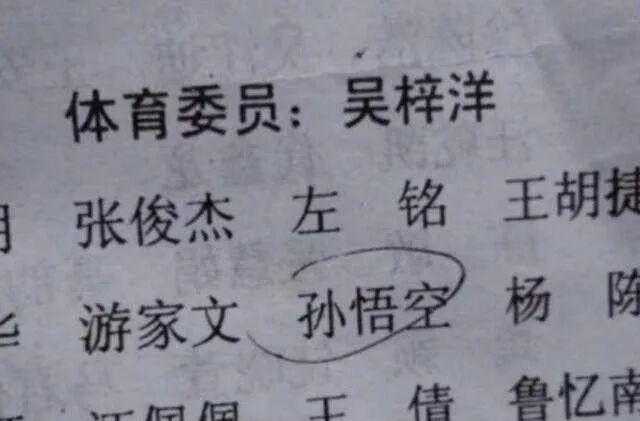 体育委员：吴梓洋
张俊杰 左 铭 王胡捷
游家文 孙悟空 杨 陈
佩佩 王 倩 鲁忆南